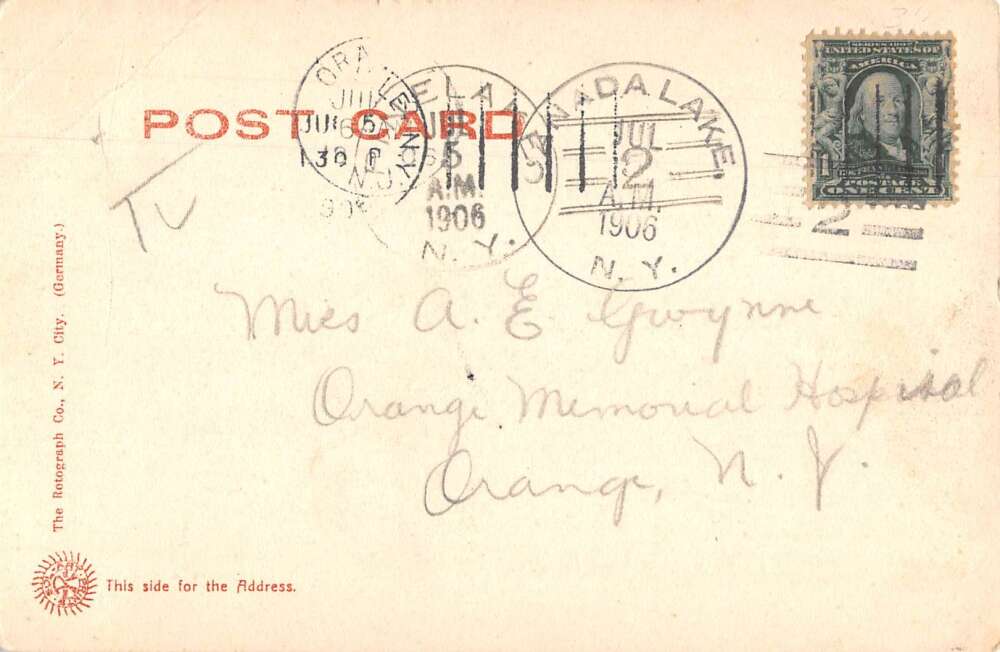 SERIES 1902
UNITED STATES OF
AMERICA
1
FRANKLIN
POSTAGE
ONE CENT
POST CARD
ORANGE
N.J.
JUL 5
130 P
1906
A.M.
1906
N.Y.
CANADA LAKE.
JUL
2
A.M.
1906
N.Y.
2
TV
Miss A. E. Gwynne
Orange Memorial Hospital
Orange, N. J.
The Rotograph Co., N. Y. City. (Germany.)
This side for the Address.